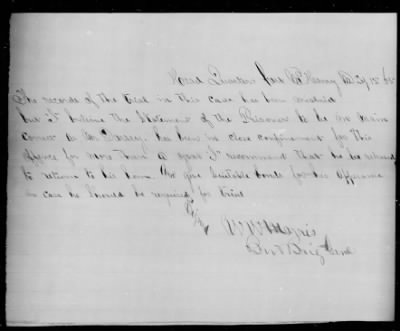 Head Quarters Fort McHenry Md
The records of the trial in this case has been mislaid
but I believe the Statement of the Prisoner to be in main
correct he has been in close confinement for this
offence for more than a year I recommend that he be released
to return to his home to give suitable bonds for his appearance
in case he should be required for trial
W W Morris
Bvt Brig Genl